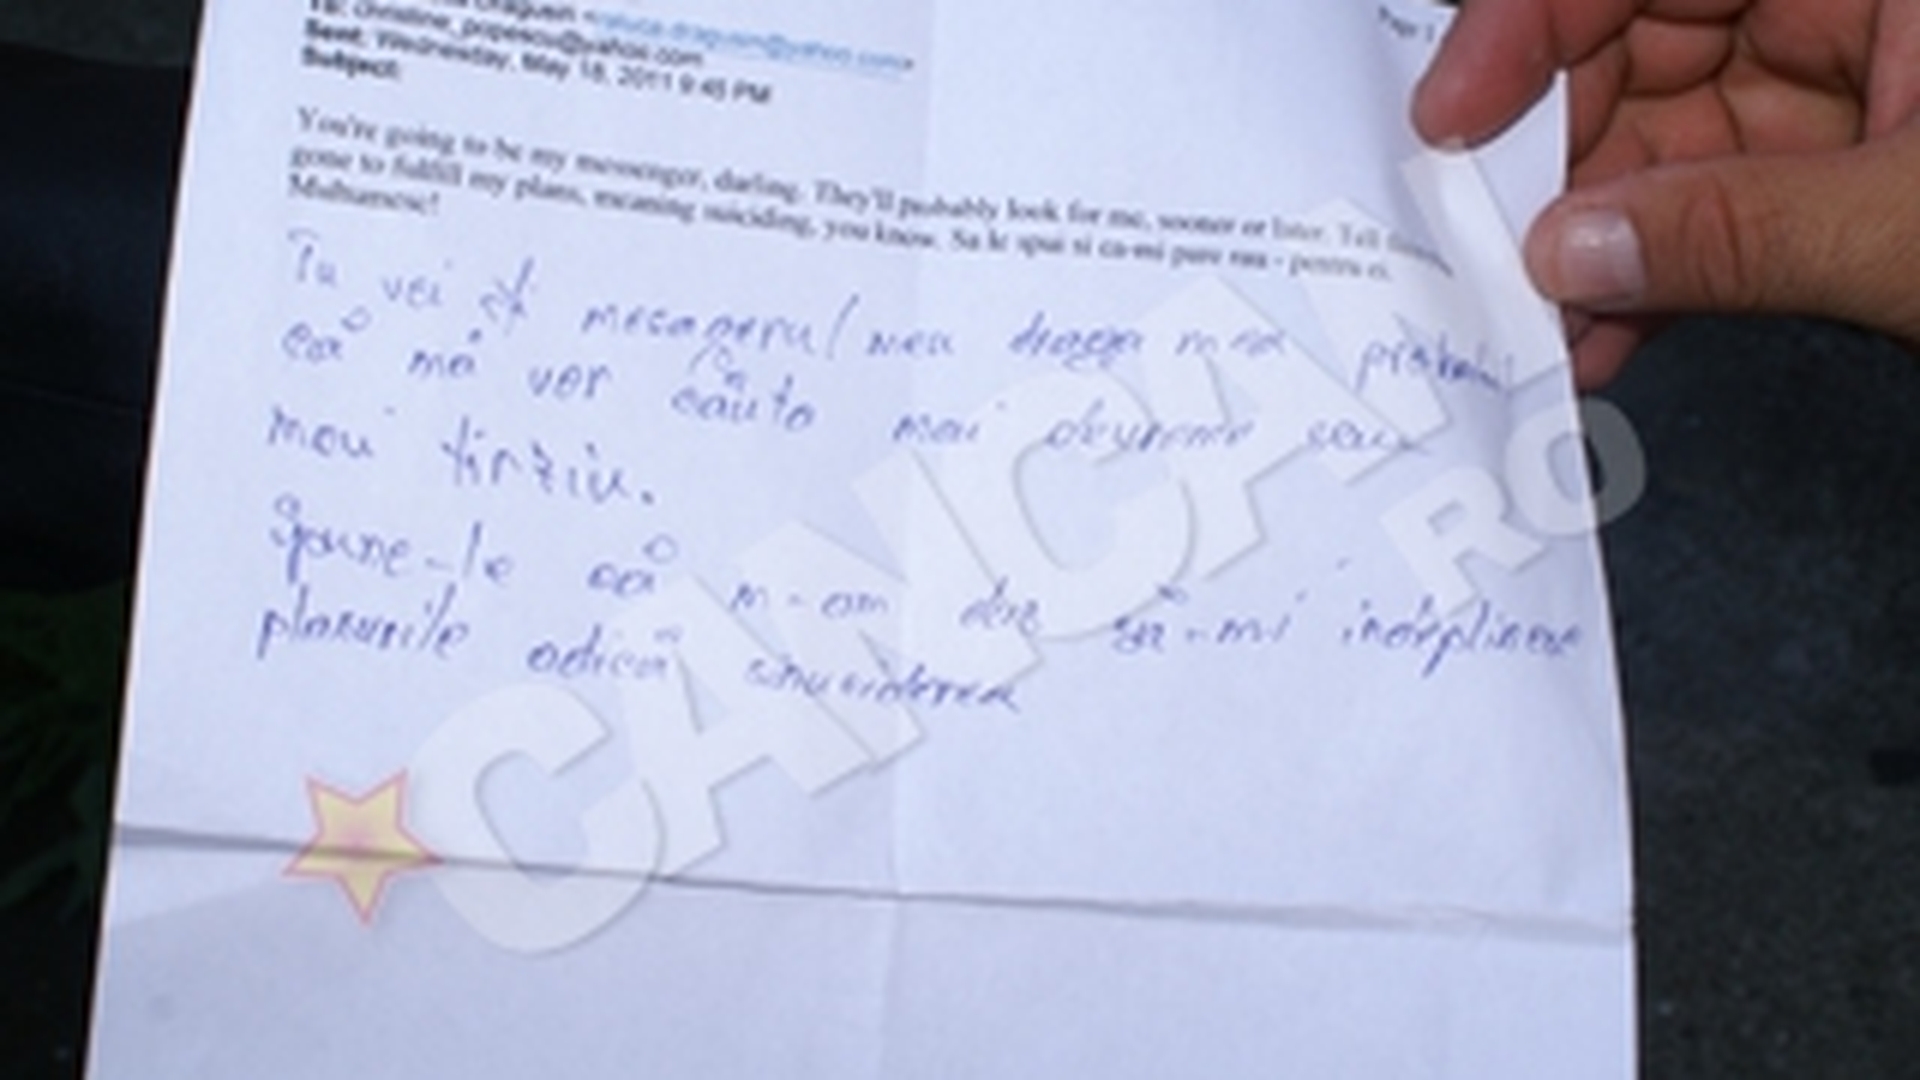 Dragusin <raluca.dragusin@yahoo.com>
To: christine_popescu@yahoo.com
Sent: Wednesday, May 18, 2011 9:45 PM
Subject:
You're going to be my messenger, darling. They'll probably look for me, sooner or later. Tell
gone to fulfill my plans, meaning suiciding, you know. Sa le spui si ca-mi pare rau - pentru ei.
Multumesc!
Tu vei fi mesagerul meu draga mea probabil
că mă vor căuta mai devreme sau
mai tirziu.
Spune-le că m-am dus să-mi indeplinesc
planurile adică sinuciderea
CANCAN
RO